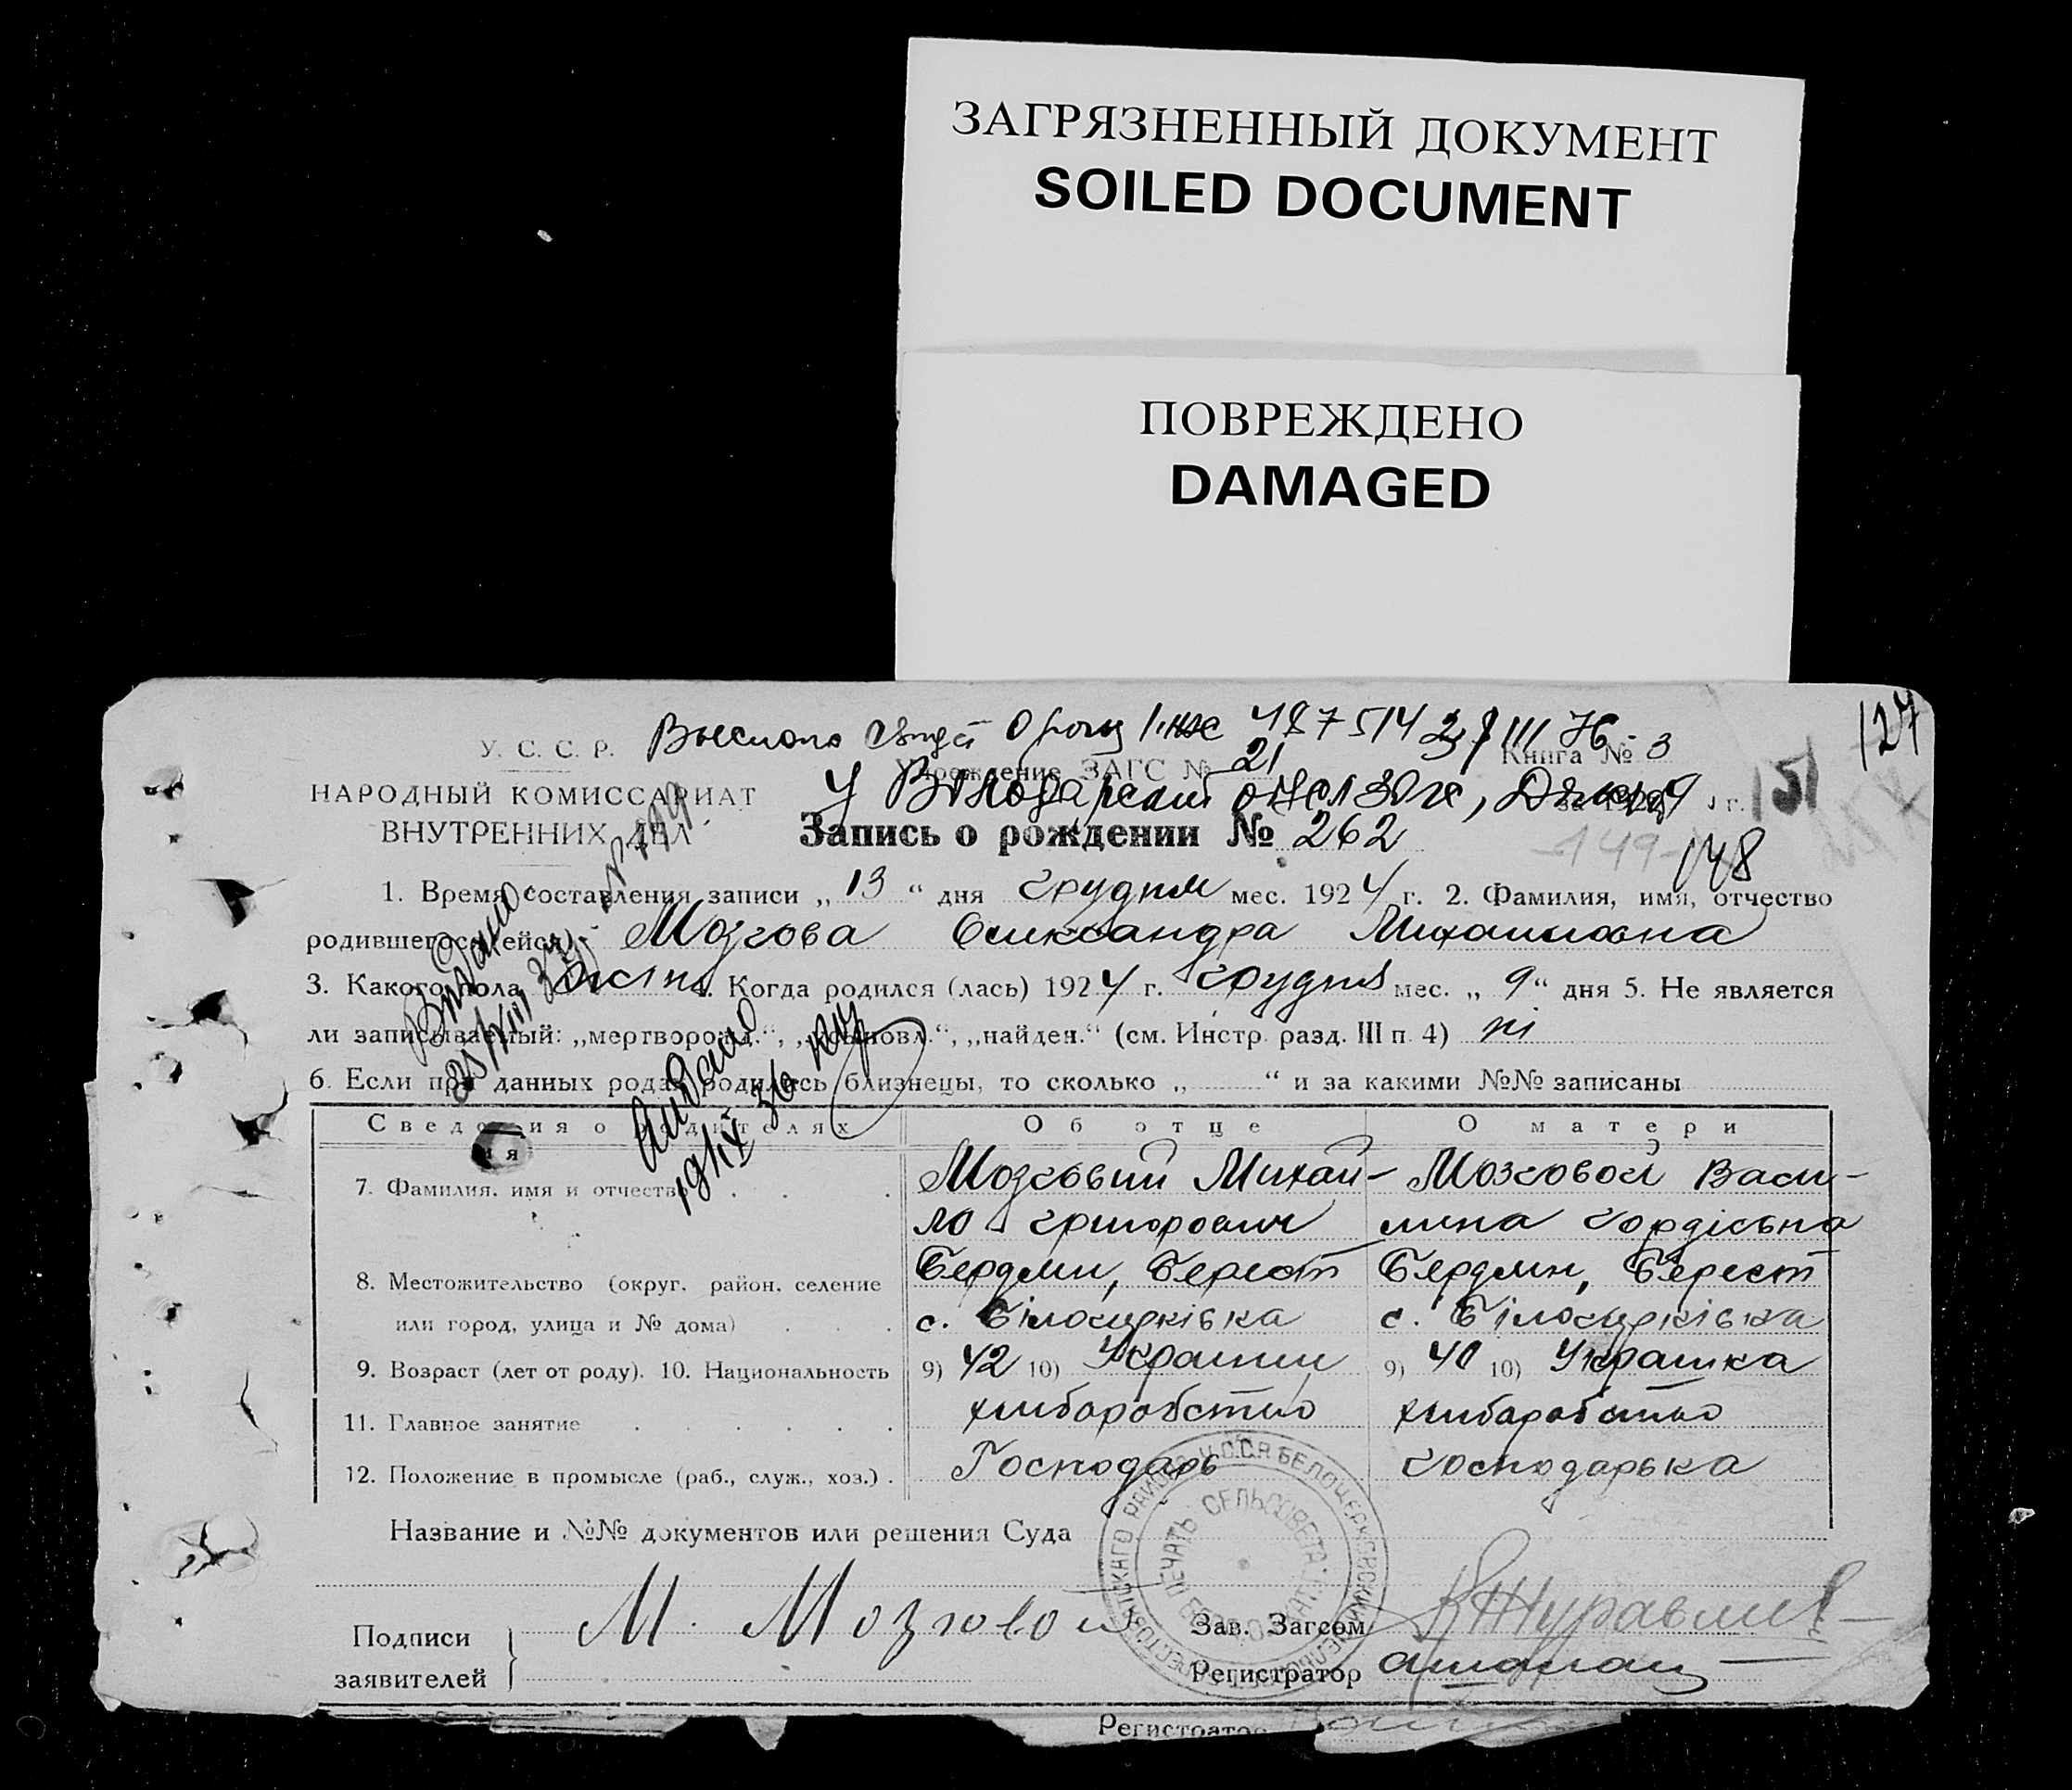 ЗАГРЯЗНЕННЫЙ ДОКУМЕНТ
SOILED DOCUMENT
ПОВРЕЖДЕНО
DAMAGED
127
У. С. С. Р.
Учреждение ЗАГС № 21 Книга № 3
НАРОДНЫЙ КОМИССАРИАТ
151
ВНУТРЕННИХ ДЕЛ
Запись о рождении № 262
-149- 148
1. Время составления записи „ 13 “ дня грудня мес. 1924 г. 2. Фамилия, имя, отчество
родившегося(ейся) Мозгова Оликсандра Михаиловна
3. Какого пола 4. Когда родился (лась) 1924 г. грудня мес. „ 9 “ дня 5. Не является
ли записываемый: „мертворожд.“, „усыновл.“, „найден.“ (см. Инстр. разд. III п. 4) ні
6. Если при данных родах родились близнецы, то сколько „ “ и за какими №№ записаны
Сведения о родителях Об отце О матери
7. Фамилия, имя и отчество Мозговий Михай- Мозговой Васи-
ло Григорович лина Гордієвна
8. Местожительство (округ. район. селение Бердян, Берест Бердян, Берест
или город, улица и № дома) с. Білоцерківка с. Білоцерківка
9. Возраст (лет от роду). 10. Национальность 9) 42 10) Украинц 9) 40 10) Украинка
11. Главное занятие хлиборобство хлиборобство
12. Положение в промысле (раб., служ., хоз.) Господарь господарька
Название и №№ документов или решения Суда
У.С.С.Р. БЕЛОЦЕРКОВСКИЙ
ПЕЧАТЬ СЕЛЬСОВЕТА
Подписи
заявителей
М. Мозговой
Зав. Загсом Журавлив
Регистратор
Регистратор
Видано
Видано
19/IX 36